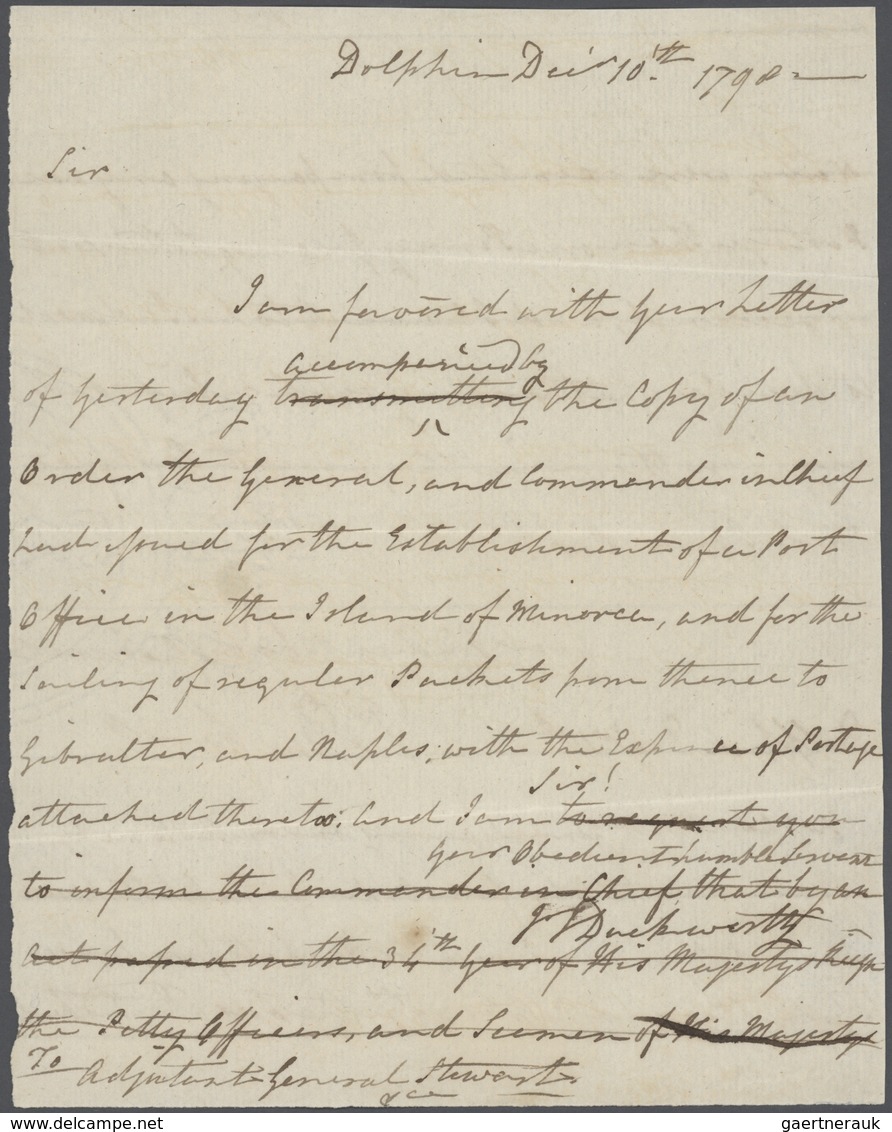 Dolphin Decr 10th 1798
Sir
I am favored with your Letter
accompanied by
of Yesterday transmitting the Copy of an
Order the General, and Commander in Chief
had issued for the Establishment of a Post
Office in the Island of Minorca, and for the
Sailing of regular Packets from thence to
Gibralter, and Naples, with the Expence of Postage
Sir!
attached thereto. And I am to request you
Your Obedient humble Servant
to inform the Commander in Chief, that by an
J T Duckworth
Act passed in the 34th Year of His Majestys Reign
the Petty Officers, and Seamen of His Majestys
To
Adjutant General Stewart
&ca
gaertnerauk